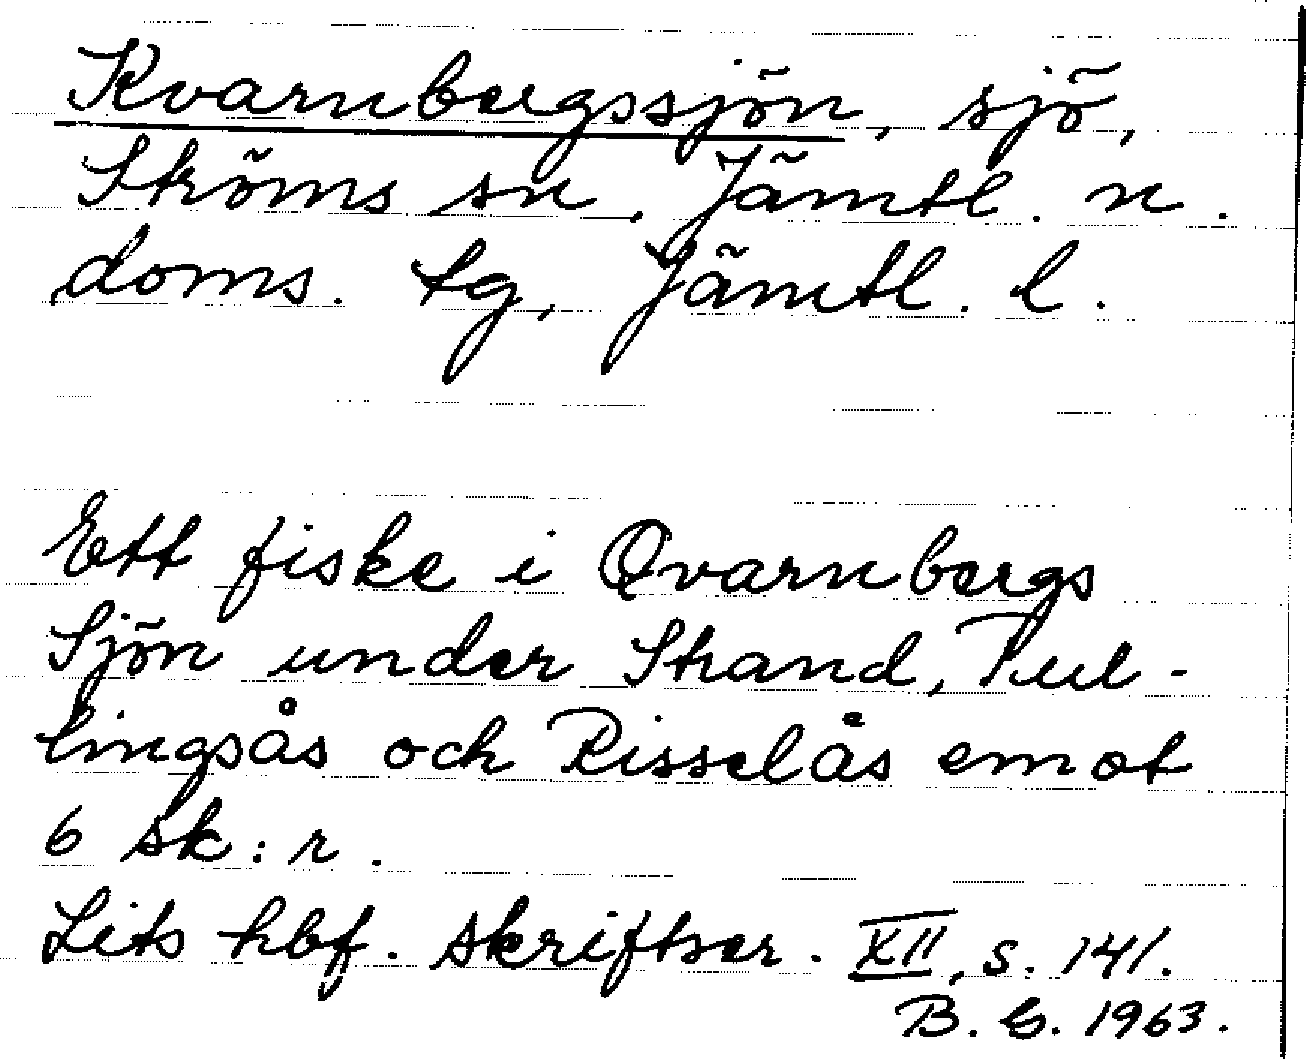 Kvarnbergssjön, sjö,
Ströms sn. Jämtl. n.
doms. tg, Jämtl. l.
Ett fiske i Qvarnbergs
Sjön under Strand, Tul-
lingsås och Risselås emot
6 sk:r.
Lits hbf. skriftser. XII, s. 141.
B. G. 1963.